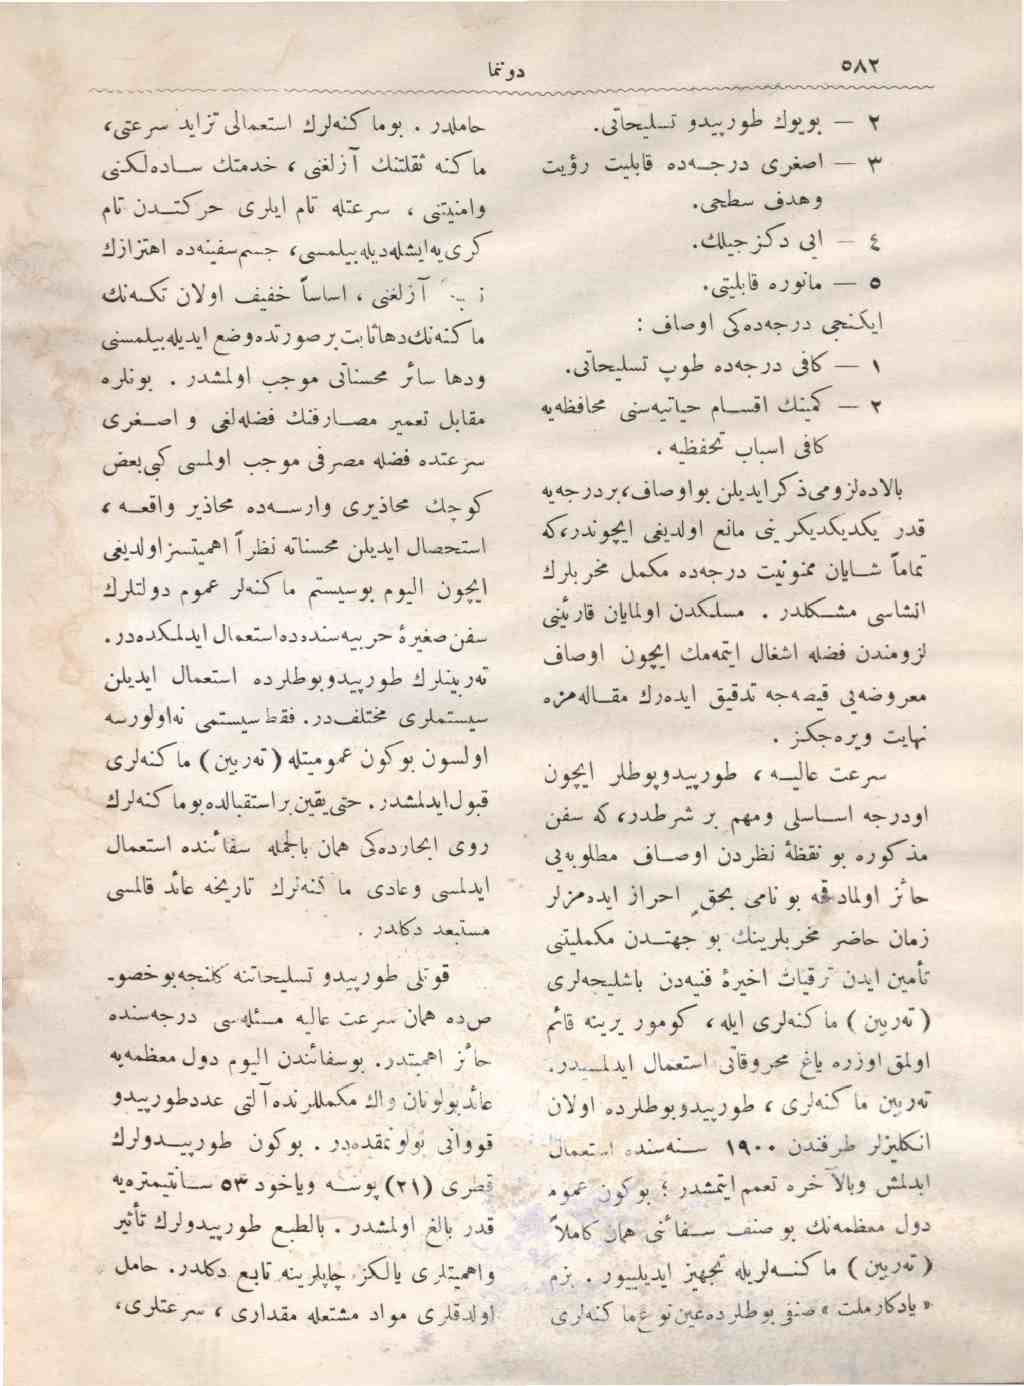 ٥٨٢
دوننما
٢ — بويوك طورپيدو تسليحاتى.
٣ — اصغرى درجه‌ده قابليت رؤيت
وهدف سطحى.
٤ — ايى دكزجيلك.
٥ — مانوره قابليتى.
ايكنجى درجه‌ده‌كى اوصاف :
١ — كافى درجه‌ده طوپ تسليحاتى.
٢ — كمينك اقسام حياتيه‌سنى محافظه‌يه
كافى اسباب تحفظيه .
بالاده‌لزومى‌ذكرايديلن بواوصاف، بردرجه‌يه
قدر يكديكديكرينى مانع اولديغى ايچوندر، كه
تماماً شايان ممنونيت درجه‌ده مكمل مخربلرك
انشاسى مشكلدر . مسلكدن اولمايان قارئينى
لزومندن فضله اشغال ايتمه‌مك ايچون اوصاف
معروضه‌يى قيصه‌جه تدقيق ايده‌رك مقاله‌مزه
نهايت ويره‌جكز .
سرعت عاليه ، طورپيدوبوطلر ايچون
اودرجه اساسلى ومهم بر شرطدر، كه سفن
مذكوره بو نقطۀ نظردن اوصاف مطلوبه‌يى
حائز اولمادقجه بو نامى بحق احراز ايده‌مزلر
زمان حاضر مخربلرينك بو جهتدن مكمليتنى
تأمين ايدن ترقيات اخيرۀ فنيه‌دن باشليجه‌لرى
(ته‌ربين) ماكنه‌لرى ايله، كومور يرينه قائم
اولمق اوزره ياغ محروقاتى استعمال ايدلمسيدر.
ته‌ربين ماكنه‌لرى ، طورپيدوبوطلرده اولان
انكليزلر طرفندن ١٩٠٠ سنه‌سنده استعمال
ايدلمش وبالآخره تعمم ايتمشدر ؛ بوكون عموم
دول معظمه‌نك بو صنف سفائنى همان كاملاً
(ته‌ربين) ماكنه‌لريله تجهيز ايديلييور . بزم
«يادكارملت» صنفى بوطلرده‌عين نوع‌ماكنه‌لرى
حاملدر . بوماكنه‌لرك استعمالى تزايد سرعتى،
ماكنه ثقلتنك آزلغنى ، خدمتك ساده‌لكنى
وامنيتنى ، سرعتله تام ايلرى حركتدن تام
كرى‌يه‌ايشله‌ديله‌بيلمسى، جسم‌سفينه‌ده اهتزازك
آزلغنى ، اساساً خفيف اولان تكنه‌نك
ماكنه‌نك‌دهاثابت‌برصورتده‌وضع ايديله‌بيلمسنى
ودها سائر محسناتى موجب اولمشدر . بونلره
مقابل تعمير مصارفنك فضله‌لغى و اصغرى
سرعتده فضله مصرفى موجب اولمسى كبى‌بعض
كوچك محاذيرى وارسه‌ده محاذير واقعه ،
استحصال ايديلن محسناته نظراً اهميتسزاولديغى
ايچون اليوم بوسيستم ماكنه‌لر عموم دولتلرك
سفن صغيرۀ حربيه‌سنده‌ده‌استعمال ايدلمكده‌در.
ته‌ربينلرك طورپيدوبوطلرده استعمال ايديلن
سيستملرى مختلفدر. فقط سيستمى نه‌اولورسه
اولسون بوكون عموميتله (ته‌ربين) ماكنه‌لرى
قبول‌ايدلمشدر. حتى يقين‌براستقبالده‌بوماكنه‌لرك
روى ابحارده‌كى همان بالجمله سفائنده استعمال
ايدلمسى وعادى ماكنه‌لرك تاريخه عائد قالمسى
مستبعد دكلدر .
قوتلى طورپيدو تسليحاتنه كلنجه‌بوخصو‌ـ
صده همان سرعت عاليه مسئله‌سى درجه‌سنده
حائز اهميتدر. بوسفائندن اليوم دول معظمه‌يه
عائدبولونان واك مكمللرنده‌آلتى عددطورپيدو
قووانى بولونمقده‌در . بوكون طورپيدولرك
قطرى (٢١) پوسه وياخود ٥٣ سانتيمتره‌يه
قدر بالغ اولمشدر . بالطبع طورپيدولرك تأثير
واهميتلرى يالكز چاپلرينه تابع دكلدر. حامل
اولدقلرى مواد مشتعله مقدارى ، سرعتلرى،